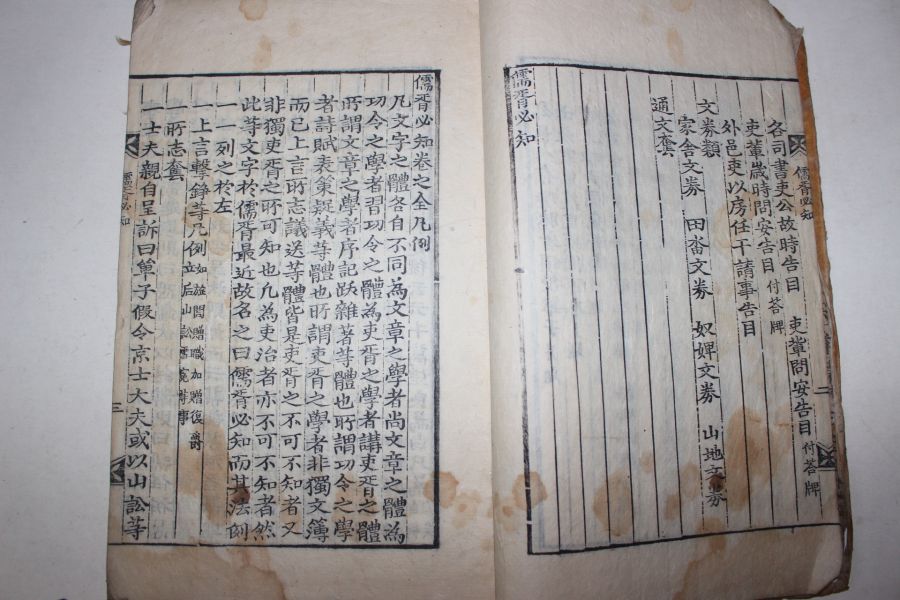 儒胥必知
各司書吏公故時告目 吏軰問安告目 付答牌
吏軰歲時問安告目 付答牌
外邑吏以房任干請事告目
文券類
家舍文券 田畓文券 奴婢文券 山地文券
通文套
儒胥必知
儒胥必知卷之全凡例
凡文字之體各自不同為文章之學者尚文章之體為
功令之學者習功令之體為吏胥之學者講吏胥之體
所謂文章之學者序記跋雜著等體也所謂功令之學
者詩賦表策疑義等體也所謂吏胥之學者非獨文簿
而已上言所志議送等體皆是吏胥之不可不知者又
非獨吏胥之所可知也凡為吏治者亦不可不知者然
此等文字於儒胥最近故名之曰儒胥必知而其法例
一一列之於左
一上言擊錚等凡例 如旌閭贈職加贈復爵
立后山訟
所志套
一士夫親自呈訴曰單子假令京士大夫或以山訟等
儒胥必知
三